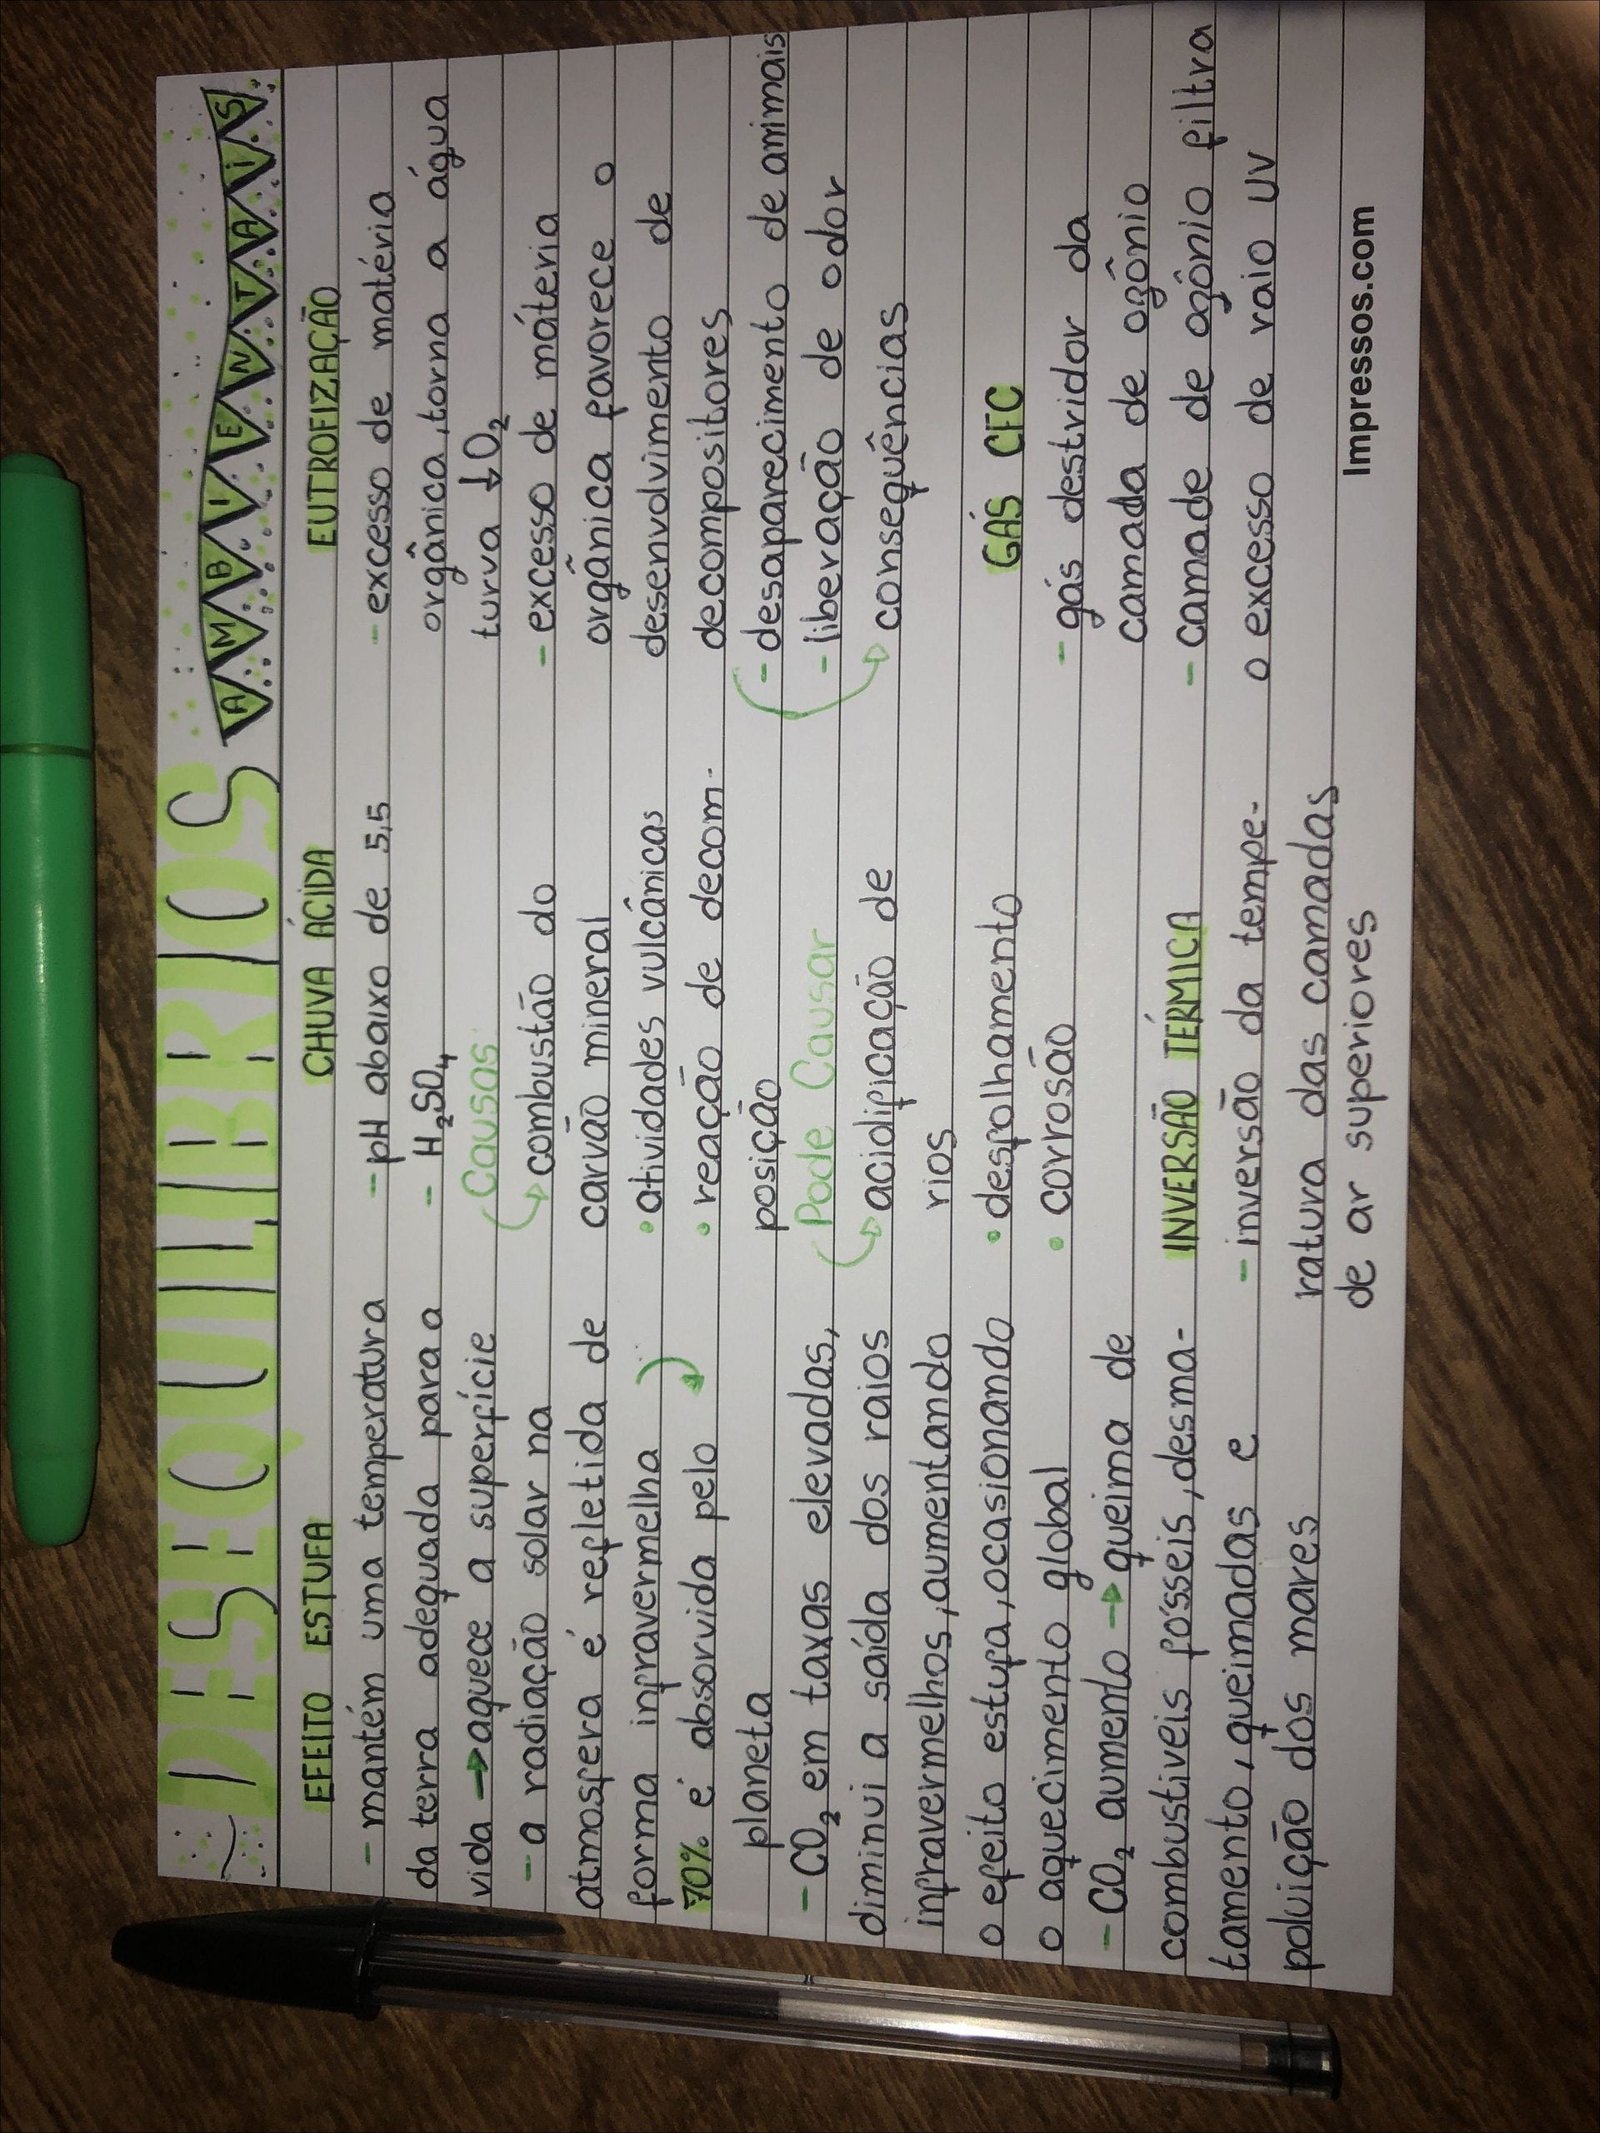 DESEQUILIBRIOS AMBIENTAIS
EFEITO ESTUFA
- mantém uma temperatura
da terra adequada para a
vida → aquece a superfície
- a radiação solar na
atmosfera é refletida de
forma infravermelha
70% é absorvida pelo
planeta
- CO₂ em taxas elevadas,
diminui a saída dos raios
infravermelhos, aumentando
o efeito estufa, ocasionando
o aquecimento global
- CO₂ aumento → queima de
combustiveis fósseis, desma-
tamento, queimadas e
poluição dos mares
CHUVA ÁCIDA
- pH abaixo de 5,5
- H₂SO₄
Causas
↳ combustão do
carvão mineral
• atividades vulcânicas
• reação de decom-
posição
Pode Causar
↳ acidificação de
rios
• desfolhamento
• corrosão
INVERSÃO TÉRMICA
- inversão da tempe-
ratura das camadas
de ar superiores
EUTROFIZAÇÃO
- excesso de matéria
orgânica, torna a água
turva ↓O₂
- excesso de máteria
orgânica favorece o
desenvolvimento de
decompositores
- desaparecimento de animais
- liberação de odor
→ consequências
GÁS CFC
- gás destridor da
camada de ozônio
- camade de ozônio filtra
o excesso de raio UV
Impressos.com